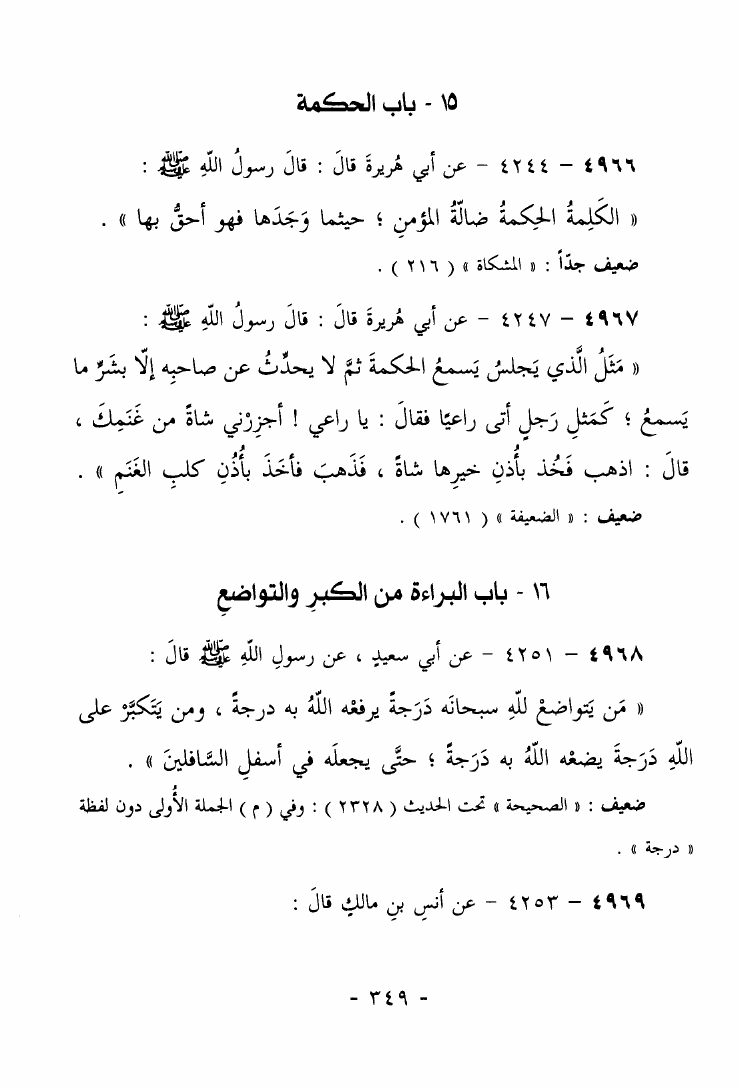 ١٥ - باب الحكمة
٤٩٦٦ – ٤٢٤٤ – عن أبي هُريرةَ قالَ : قالَ رسولُ اللّهِ ﷺ :
« الكَلِمةُ الحِكمةُ ضالّةُ المؤمنِ ؛ حيثما وَجَدَها فهو أحقُّ بها » .
ضعيف جدّاً : « المشكاة » ( ٢١٦ ) .
٤٩٦٧ – ٤٢٤٧ – عن أبي هُريرةَ قالَ : قالَ رسولُ اللّهِ ﷺ :
« مَثَلُ الَّذي يَجلسُ يَسمعُ الحكمةَ ثمَّ لا يحدِّثُ عن صاحبِه إلّا بشَرِّ ما
يَسمعُ ؛ كَمَثلِ رَجلٍ أتى راعيًا فقالَ : يا راعي ! أجزِرْني شاةً من غَنَمِكَ ،
قالَ : اذهب فَخُذ بأُذنِ خيرِها شاةً ، فَذَهبَ فأخَذَ بأُذُنِ كلبِ الغَنَمِ » .
ضعيف : « الضعيفة » ( ١٧٦١ ) .
١٦ - باب البراءة من الكبرِ والتواضعِ
٤٩٦٨ – ٤٢٥١ – عن أبي سعيدٍ ، عن رسولِ اللّهِ ﷺ قالَ :
« مَن يَتواضعْ للّهِ سبحانَه دَرَجةً يرفعْه اللّهُ به درجةً ، ومن يَتَكبَّرْ على
اللّهِ دَرَجةَ يضعْه اللّهُ به دَرَجةً ؛ حتَّى يجعلَه في أسفلِ السَّافلينَ » .
ضعيف : « الصحيحة » تحت الحديث ( ٢٣٢٨ ) : وفي ( م ) الجملة الأُولى دون لفظة
« درجة » .
٤٩٦٩ – ٤٢٥٣ – عن أنسِ بنِ مالكٍ قالَ :
- ٣٤٩ -